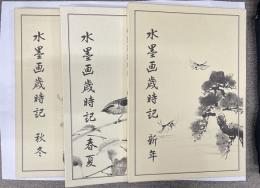 水墨画歳時記 秋冬
水墨画歳時記 春夏
水墨画歳時記 新年